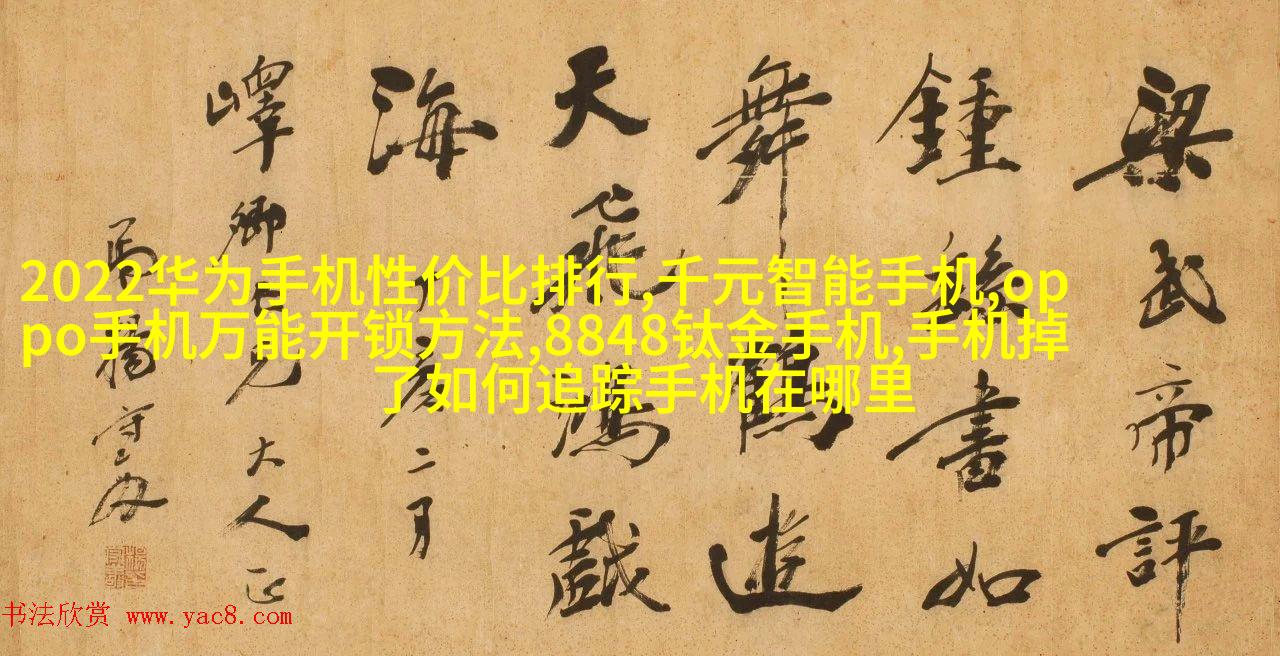 梁武帝評
鍾繇書如
舞鶴遊
天飛鴻戲
海
二月
嶧卿仁兄大人正
楊守敬
2022华为手机性价比排行,千元智能手机,op
po手机万能开锁方法,8848钛金手机,手机掉
了如何追踪手机在哪里
书法欣赏 www.yac8.com